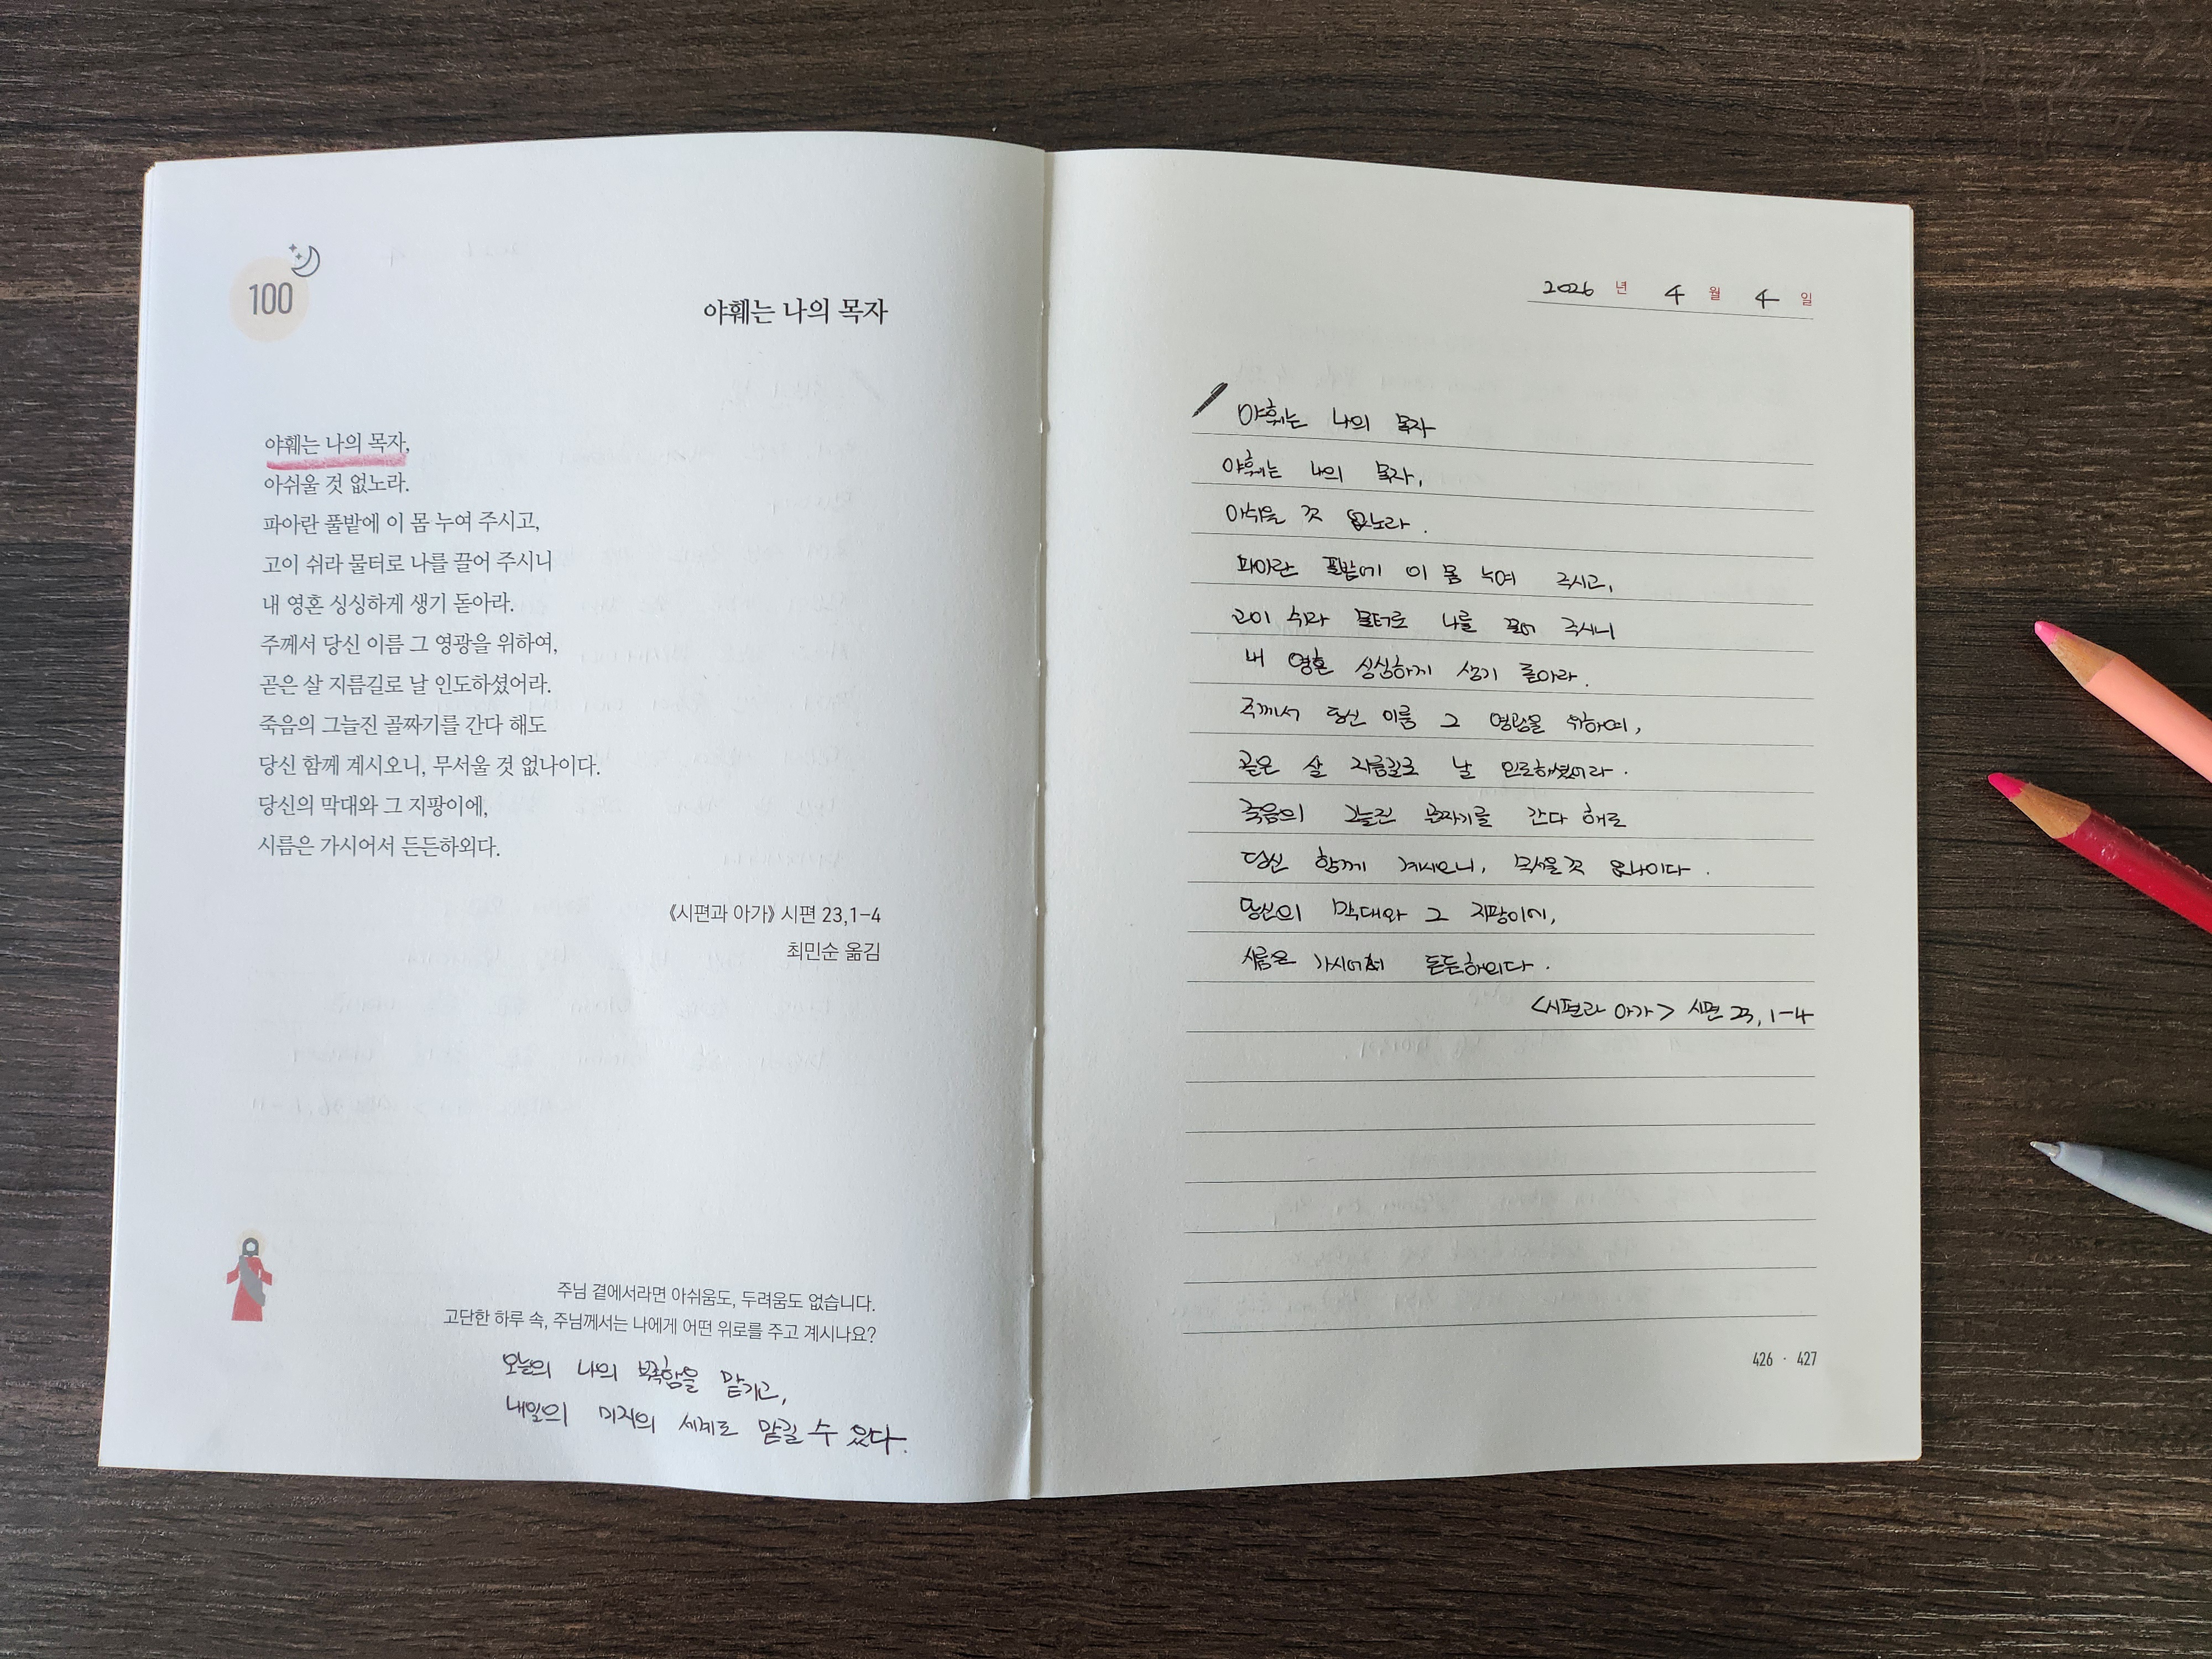 100
야훼는 나의 목자
야훼는 나의 목자,
아쉬울 것 없노라.
파아란 풀밭에 이 몸 누여 주시고,
고이 쉬라 물터로 나를 끌어 주시니
내 영혼 싱싱하게 생기 돋아라.
주께서 당신 이름 그 영광을 위하여,
곧은 살 지름길로 날 인도하셨어라.
죽음의 그늘진 골짜기를 간다 해도
당신 함께 계시오니, 무서울 것 없나이다.
당신의 막대와 그 지팡이에,
시름은 가시어서 든든하외다.
《시편과 아가》 시편 23,1-4
최민순 옮김
주님 곁에서라면 아쉬움도, 두려움도 없습니다.
고단한 하루 속, 주님께서는 나에게 어떤 위로를 주고 계시나요?
오늘의 나의 부족함을 맡기고,
내일의 미지의 세계도 맡길 수 있다.
2026 년 4 월 4 일
야훼는 나의 목자
야훼는 나의 목자,
아쉬울 것 없노라.
파아란 풀밭에 이 몸 누여 주시고,
고이 쉬라 물터로 나를 끌어 주시니
내 영혼 싱싱하게 생기 돋아라.
주께서 당신 이름 그 영광을 위하여,
곧은 살 지름길로 날 인도하셨어라.
죽음의 그늘진 골짜기를 간다 해도
당신 함께 계시오니, 무서울 것 없나이다.
당신의 막대와 그 지팡이에,
시름은 가시어서 든든하외다.
<시편과 아가> 시편 23, 1-4
426 · 427